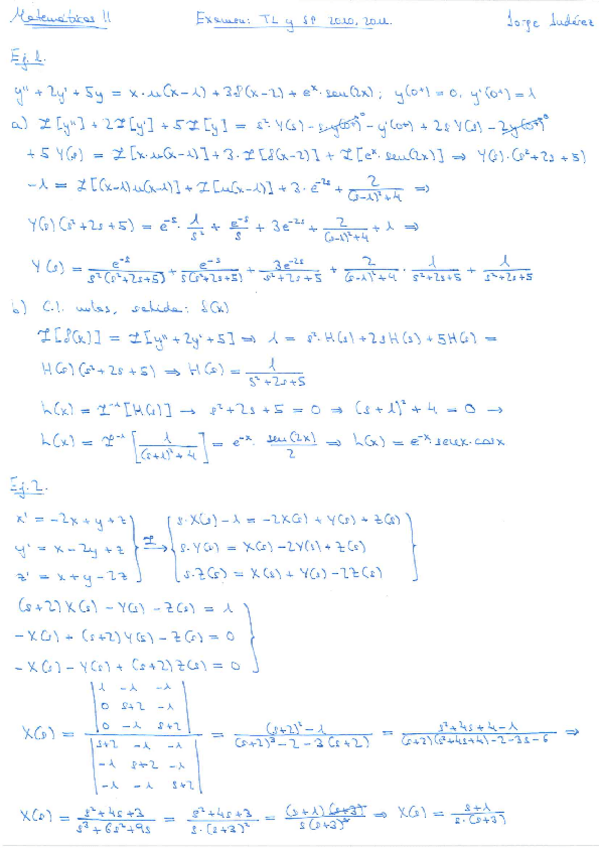 Matemáticas II Examen: TL y SP 2010, 2011. Jorge
Ej. 1.
y'' + 2y' + 5y = x·u(x-1) + 3δ(x-2) + e^x·sen(2x); y(0+) = 0, y'(0+) = 1
a) ℒ[y''] + 2ℒ[y'] + 5ℒ[y] = s² Y(s) - s·y(0+)^0 - y'(0+) + 2s Y(s) - 2y(0+)^0
+ 5 Y(s) = ℒ[x·u(x-1)] + 3·ℒ[δ(x-2)] + ℒ[e^x·sen(2x)] ⇒ Y(s)·(s²+2s+5)
-1 = ℒ[(x-1)u(x-1)] + ℒ[u(x-1)] + 3·e^-2s + 2/((s-1)²+4) ⇒
Y(s)(s²+2s+5) = e^-s·1/s² + e^-s/s + 3e^-2s + 2/((s-1)²+4) + 1 ⇒
Y(s) = e^-s/(s²(s²+2s+5)) + e^-s/(s(s²+2s+5)) + 3e^-2s/(s²+2s+5) + 2/((s-1)²+4)·1/(s²+2s+5) + 1/(s²+2s+5)
b) C.I. nulas, salida: δ(x)
ℒ[δ(x)] = ℒ[y''+2y'+5] ⇒ 1 = s²·H(s) + 2sH(s) + 5H(s) =
H(s)(s²+2s+5) ⇒ H(s) = 1/(s²+2s+5)
h(x) = ℒ^-1[H(s)] → s²+2s+5 = 0 ⇒ (s+1)²+4 = 0 →
h(x) = ℒ^-1[1/((s+1)²+4)] = e^-x·sen(2x)/2 ⇒ h(x) = e^-x·senx·cosx
Ej. 2.
x' = -2x+y+z } { s·X(s) - 1 = -2X(s) + Y(s) + Z(s) }
y' = x-2y+z } ℒ→ { s·Y(s) = X(s) - 2Y(s) + Z(s) }
z' = x+y-2z } { s·Z(s) = X(s) + Y(s) - 2Z(s) }
(s+2)X(s) - Y(s) - Z(s) = 1 }
-X(s) + (s+2)Y(s) - Z(s) = 0 }
-X(s) - Y(s) + (s+2)Z(s) = 0 }
|1 -1 -1|
|0 s+2 -1|
|0 -1 s+2|
X(s) = ――― = ((s+2)²-1)/((s+2)³-2-3(s+2)) = (s²+4s+4-1)/((s+2)(s²+4s+4)-2-3s-6) ⇒
|s+2 -1 -1|
|-1 s+2 -1|
|-1 -1 s+2|
X(s) = (s²+4s+3)/(s³+6s²+9s) = (s²+4s+3)/(s·(s+3)²) = (s+1)(s+3)/(s(s+3)²) ⇒ X(s) = (s+1)/(s·(s+3))